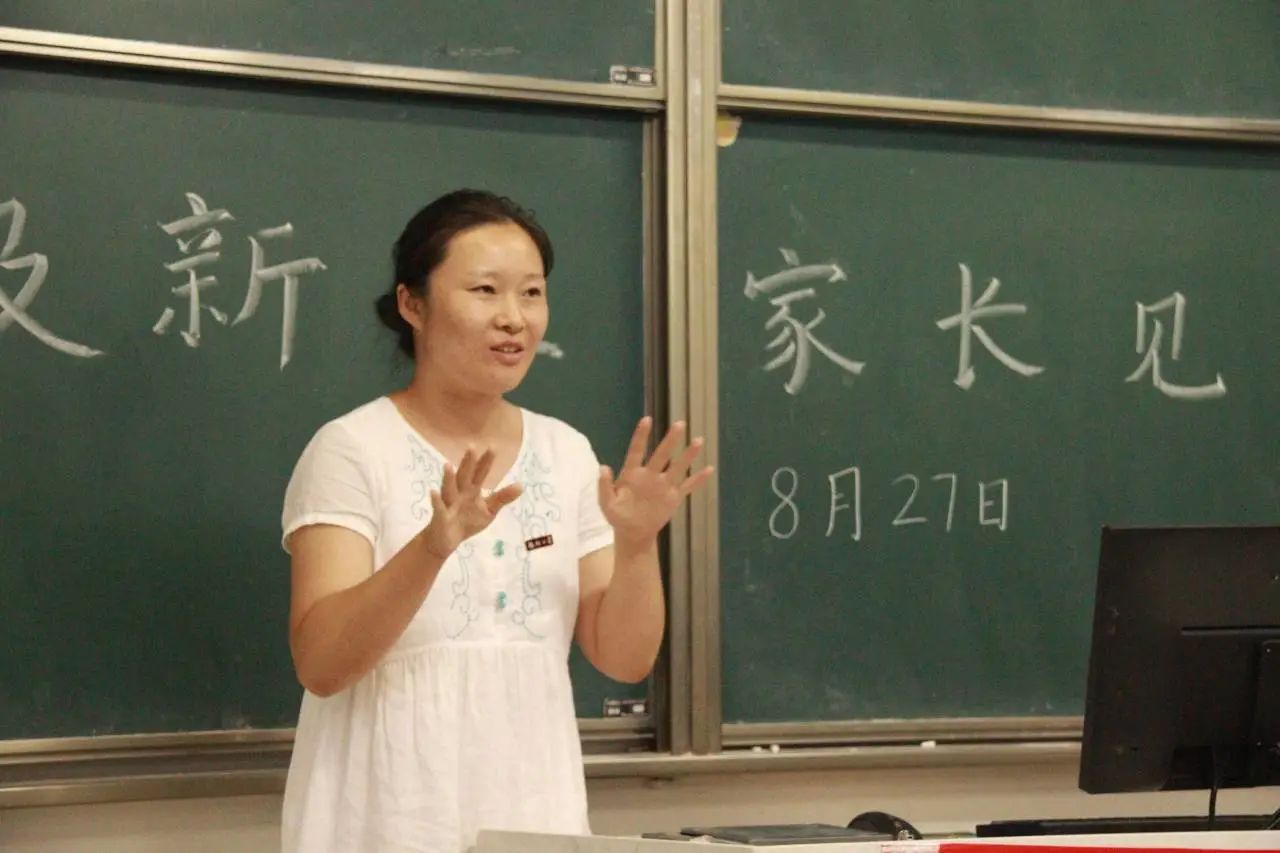 新 家长见
8月27日